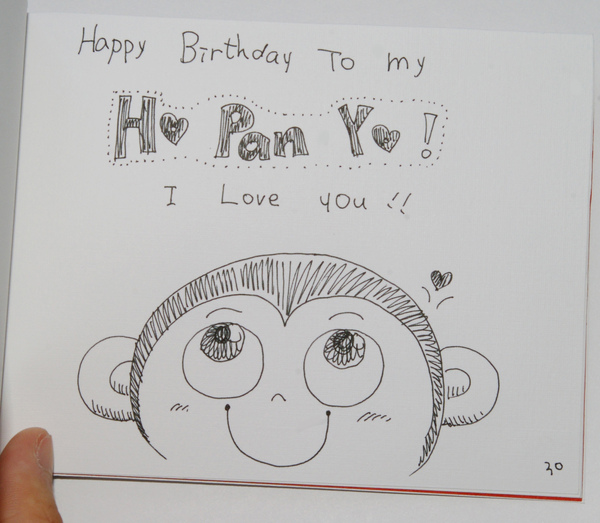 Happy Birthday To my
Ho Pan Yo!
I Love you !!
30